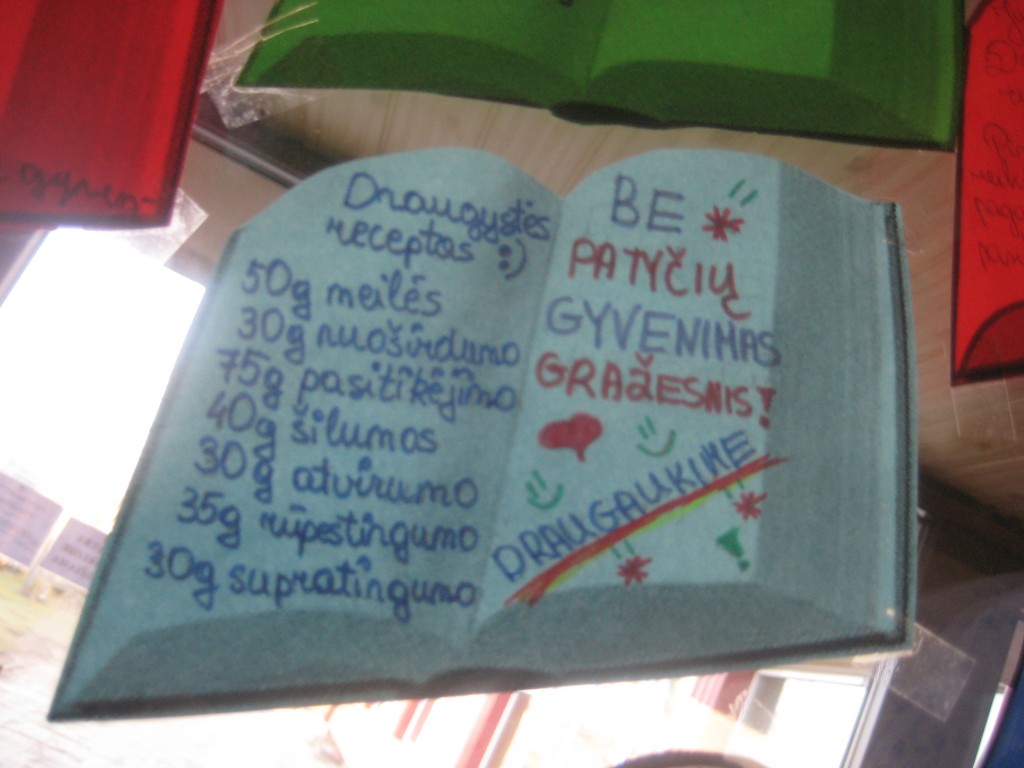 Draugystės
receptas :)
50g meilės
30g nuoširdumo
75g pasitikėjimo
40g šilumos
30g atvirumo
35g rūpestingumo
30g supratingumo
BE
PATYČIŲ
GYVENIMAS
GRAŽESNIS!
DRAUGAUKIME